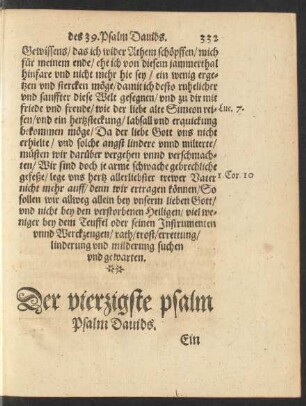 des 39. Psalm Dauids. 332
Gewissens/ das ich wider Athem schöpffen/ mich
für meinem ende/ ehe ich von diesem jammerthal
hinfare vnd nicht mehr hie sey/ ein wenig erge-
tzen vnd stercken möge/ damit ich desto ruhelicher
vnd sanffter diese Welt gesegnen/ vnd zu dir mit
friede vnd freude/ wie der liebe alte Simeon rei- Luc. 7.
sen/ vnd ein hertzsteckung/ labsall vnd erquickung
bekommen möge/ Da der liebe Gott vns nicht
erhielte/ vnd solche angst lindere vnnd milterte/
müsten wir darüber vergehen vnnd verschmach-
ten/ Wir sind doch je arme schwache gebrechliche
gefesse/ lege vns hertz allerliebster trewer Vater 1. Cor. 10
nicht mehr auff/ denn wir ertragen können/ So
sollen wir allweg allein bey vnserm lieben Gott/
vnd nicht bey den verstorbenen Heiligen/ viel we-
niger bey dem Teuffel oder seinen Instrumenten
vnnd Werckzeugen/ rath/ trost/ errettung/
linderung vnd milderung suchen
vnd gewarten.
Der vierzigste psalm
Psalm Dauids.
Ein